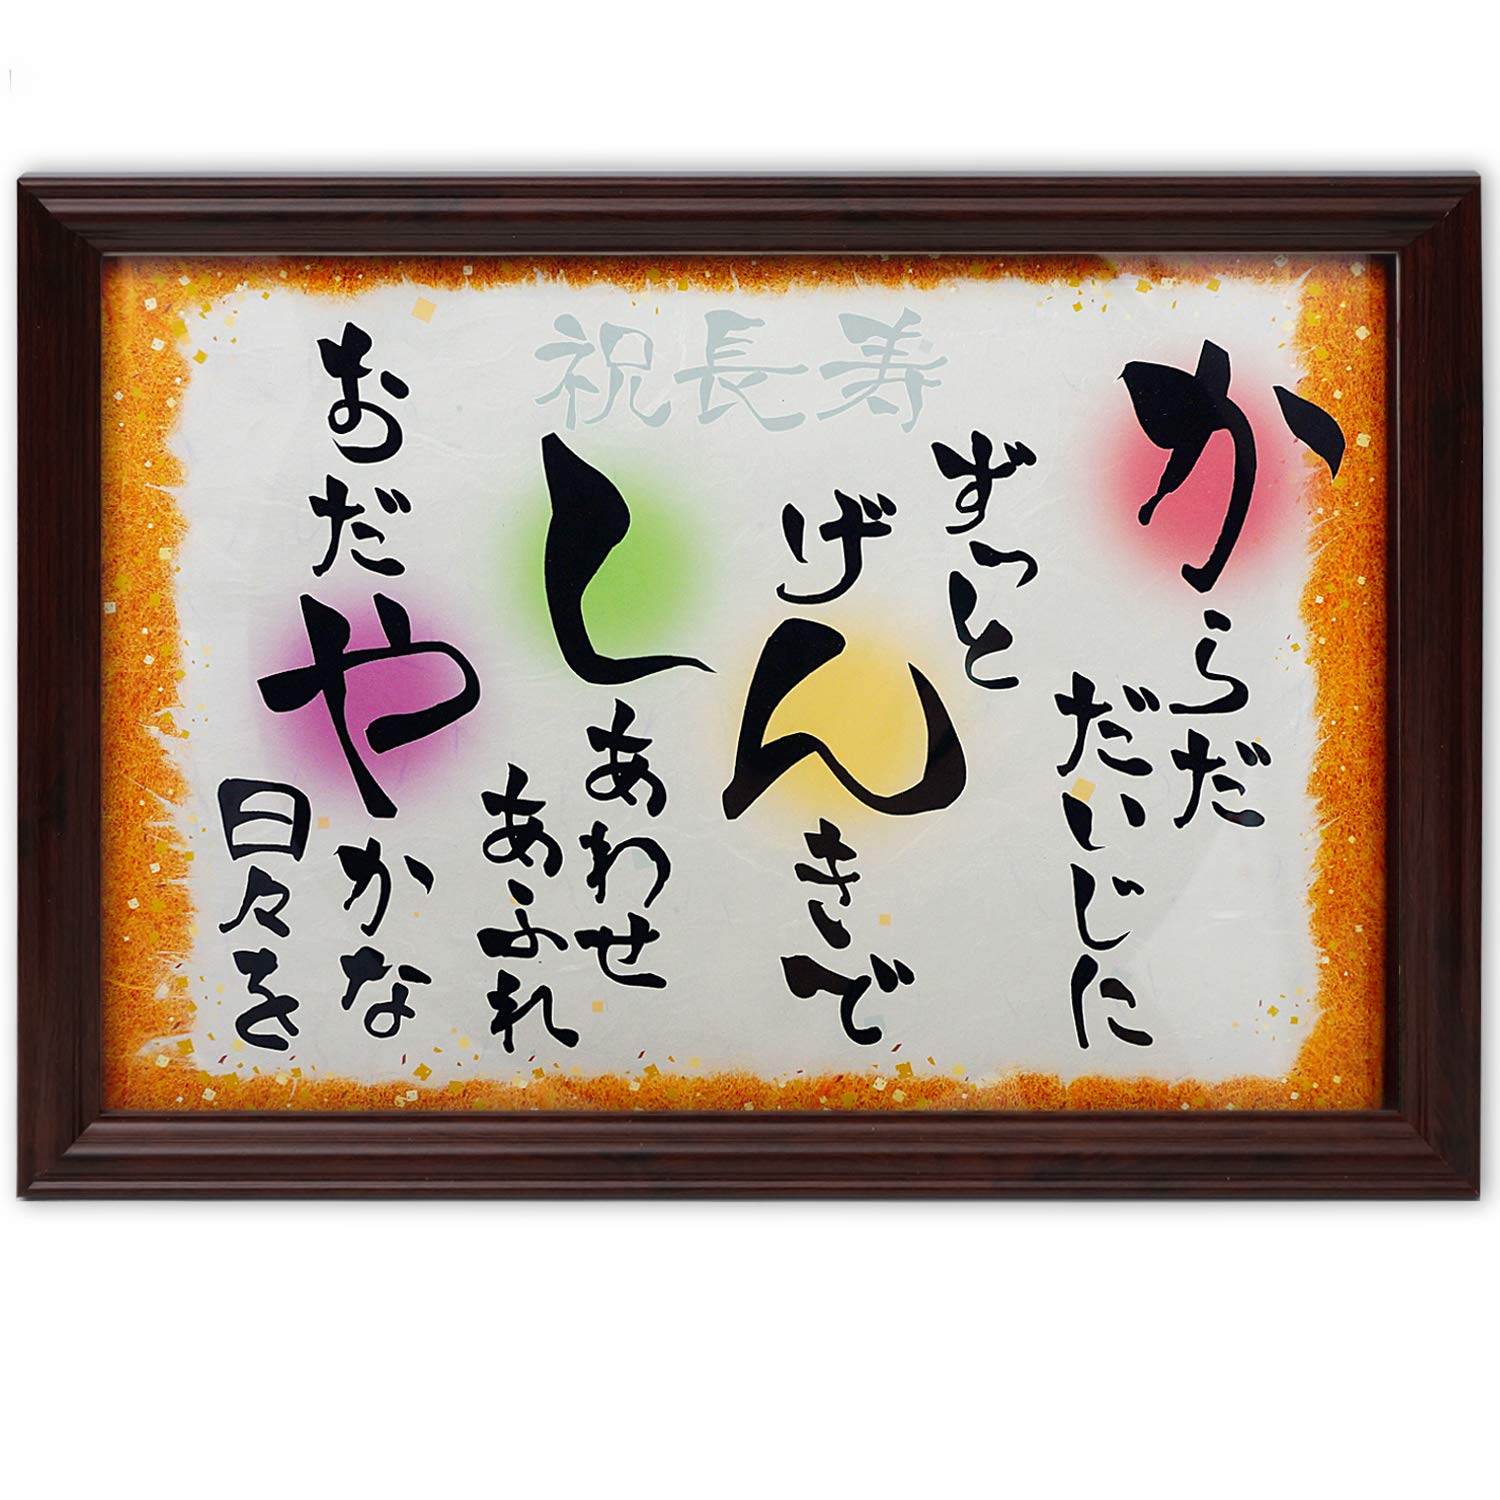 祝長寿
からだ
だいじに
ずっと
げんきで
しあわせ
あふれ
おだやかな
日々を